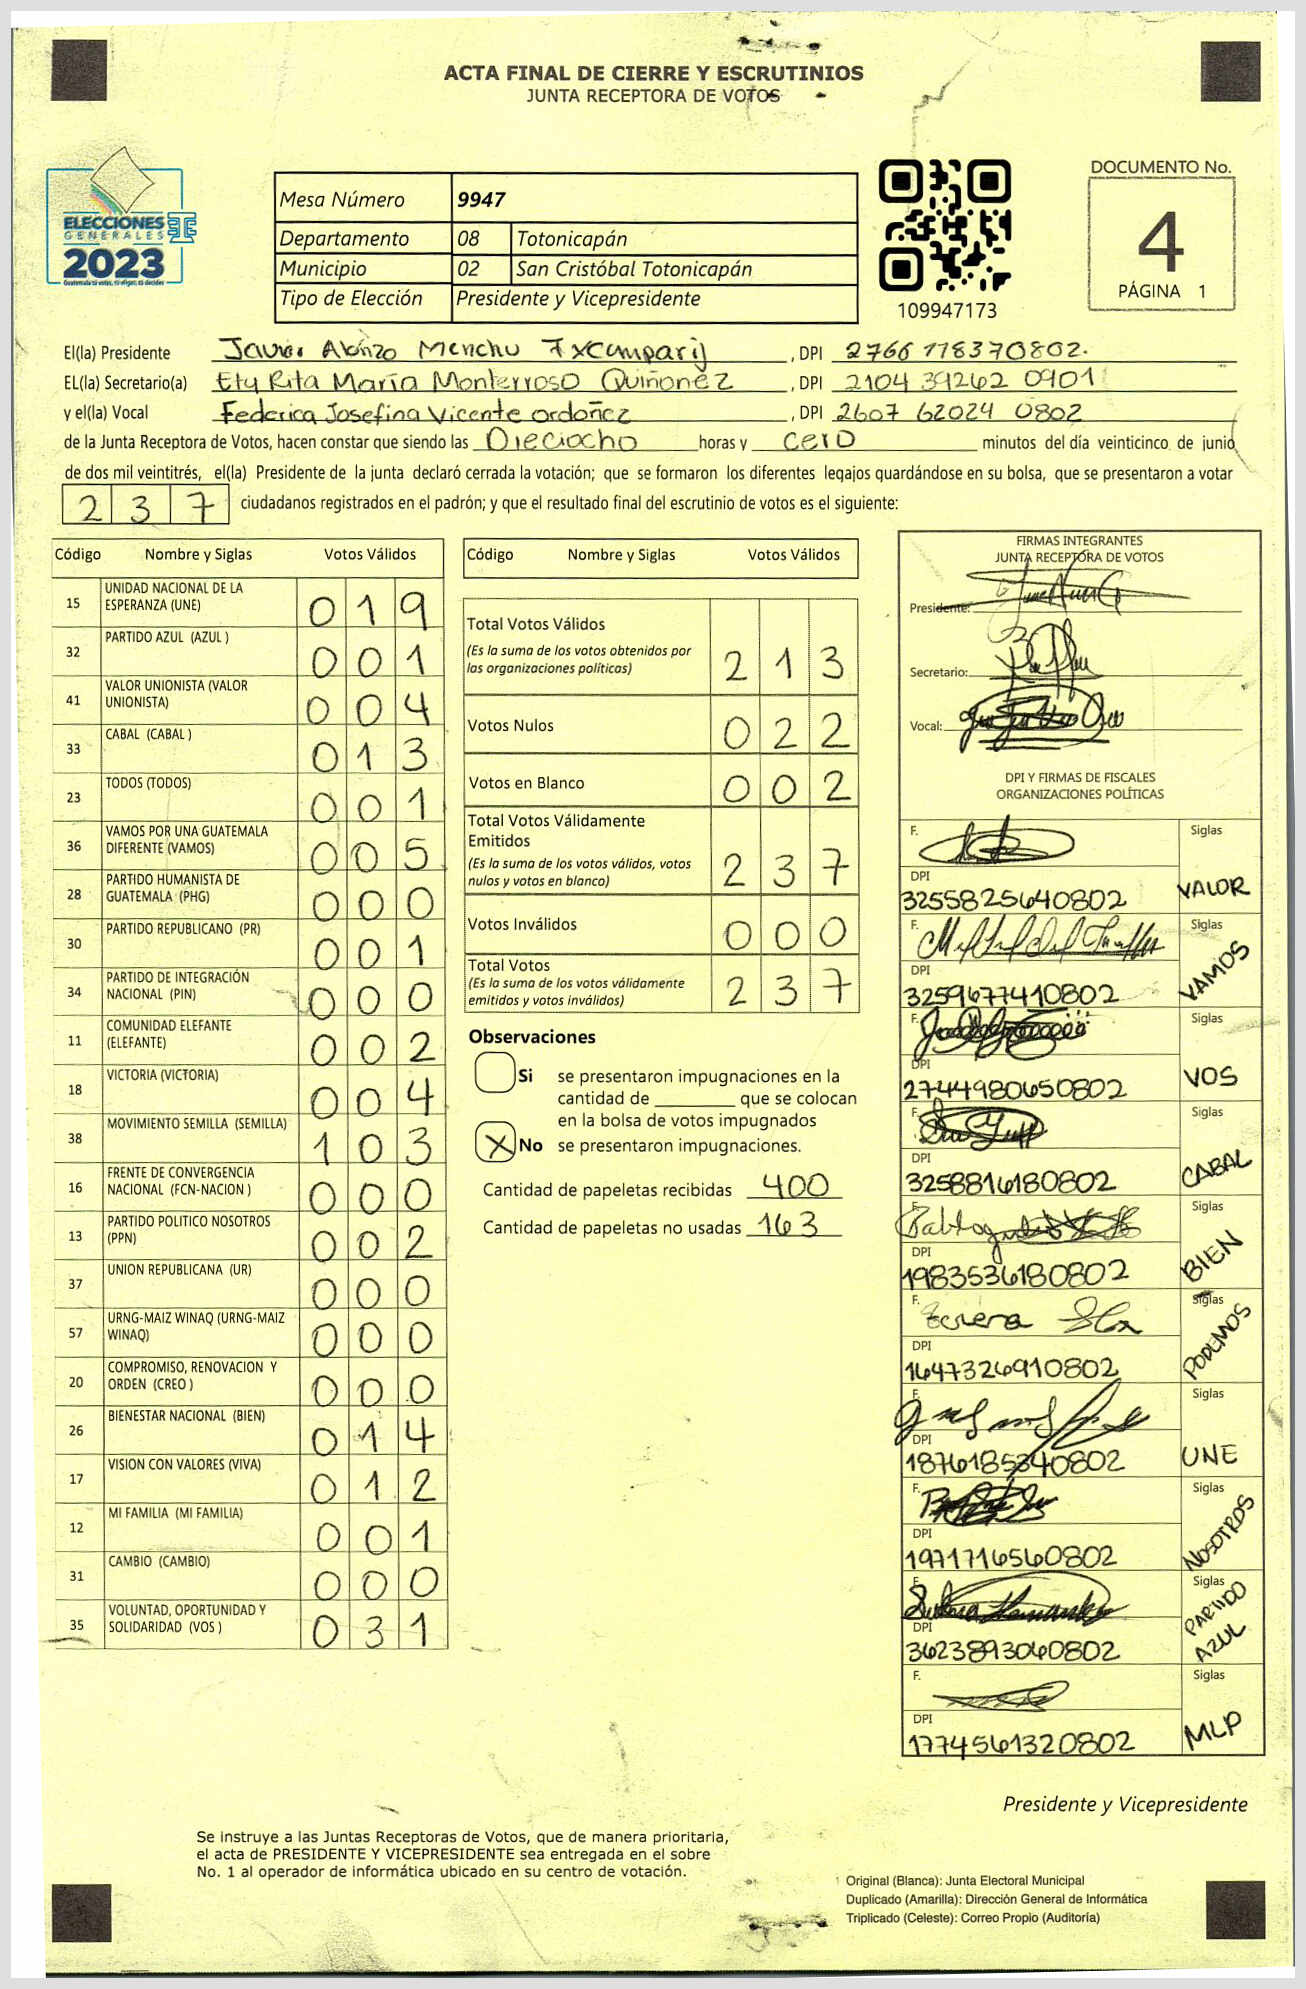 ACTA FINAL DE CIERRE Y ESCRUTINIOS
JUNTA RECEPTORA DE VOTOS
ELECCIONES
GENERALES
2023
Mesa Número 9947
Departamento 08 Totonicapán
Municipio 02 San Cristóbal Totonicapán
Tipo de Elección Presidente y Vicepresidente
109947173
DOCUMENTO No.
4
PÁGINA 1
El(la) Presidente Javier Alonzo Menchu Ixcamparij , DPI 2766 118370802.
EL(la) Secretario(a) Ety Rita María Monterroso Quiñonez , DPI 2104 39262 0901
y el(la) Vocal Federica Josefina Vicente Ordoñez , DPI 2607 62024 0802
de la Junta Receptora de Votos, hacen constar que siendo las Dieciocho horas y cero minutos del día veinticinco de junio
de dos mil veintitrés, el(la) Presidente de la junta declaró cerrada la votación; que se formaron los diferentes legajos guardándose en su bolsa, que se presentaron a votar
237 ciudadanos registrados en el padrón; y que el resultado final del escrutinio de votos es el siguiente:
Código Nombre y Siglas Votos Válidos
15 UNIDAD NACIONAL DE LA ESPERANZA (UNE) 019
32 PARTIDO AZUL (AZUL ) 001
41 VALOR UNIONISTA (VALOR UNIONISTA) 004
33 CABAL (CABAL ) 013
23 TODOS (TODOS) 001
36 VAMOS POR UNA GUATEMALA DIFERENTE (VAMOS) 005
28 PARTIDO HUMANISTA DE GUATEMALA (PHG) 000
30 PARTIDO REPUBLICANO (PR) 001
34 PARTIDO DE INTEGRACIÓN NACIONAL (PIN) 000
11 COMUNIDAD ELEFANTE (ELEFANTE) 002
18 VICTORIA (VICTORIA) 004
38 MOVIMIENTO SEMILLA (SEMILLA) 103
16 FRENTE DE CONVERGENCIA NACIONAL (FCN-NACION ) 000
13 PARTIDO POLITICO NOSOTROS (PPN) 002
37 UNION REPUBLICANA (UR) 000
57 URNG-MAIZ WINAQ (URNG-MAIZ WINAQ) 000
20 COMPROMISO, RENOVACION Y ORDEN (CREO ) 000
26 BIENESTAR NACIONAL (BIEN) 014
17 VISION CON VALORES (VIVA) 012
12 MI FAMILIA (MI FAMILIA) 001
31 CAMBIO (CAMBIO) 000
35 VOLUNTAD, OPORTUNIDAD Y SOLIDARIDAD (VOS ) 031
Código Nombre y Siglas Votos Válidos
Total Votos Válidos 213
(Es la suma de los votos obtenidos por
las organizaciones políticas)
Votos Nulos 022
Votos en Blanco 002
Total Votos Válidamente
Emitidos 237
(Es la suma de los votos válidos, votos
nulos y votos en blanco)
Votos Inválidos 000
Total Votos 237
(Es la suma de los votos válidamente
emitidos y votos inválidos)
Observaciones
Si se presentaron impugnaciones en la
cantidad de ________ que se colocan
en la bolsa de votos impugnados
X No se presentaron impugnaciones.
Cantidad de papeletas recibidas 400
Cantidad de papeletas no usadas 163
FIRMAS INTEGRANTES
JUNTA RECEPTORA DE VOTOS
Presidente:
Secretario:
Vocal:
DPI Y FIRMAS DE FISCALES
ORGANIZACIONES POLÍTICAS
F. Siglas
DPI
3255825640802 VALOR
F. Siglas
DPI
3259677410802 VAMOS
F. Siglas
DPI
2744980650802 VOS
F. Siglas
DPI
3258816180802 CABAL
F. Siglas
DPI
1983536180802 BIEN
F. Siglas
DPI
1647326910802 PODEMOS
F. Siglas
DPI
1876185340802 UNE
F. Siglas
DPI
1971716560802 NOSOTROS
F. Siglas
DPI
3623893060802 PARTIDO AZUL
F. Siglas
DPI
1774561320802 MLP
Presidente y Vicepresidente
Se instruye a las Juntas Receptoras de Votos, que de manera prioritaria,
el acta de PRESIDENTE Y VICEPRESIDENTE sea entregada en el sobre
No. 1 al operador de informática ubicado en su centro de votación.
Original (Blanca): Junta Electoral Municipal
Duplicado (Amarilla): Dirección General de Informática
Triplicado (Celeste): Correo Propio (Auditoría)